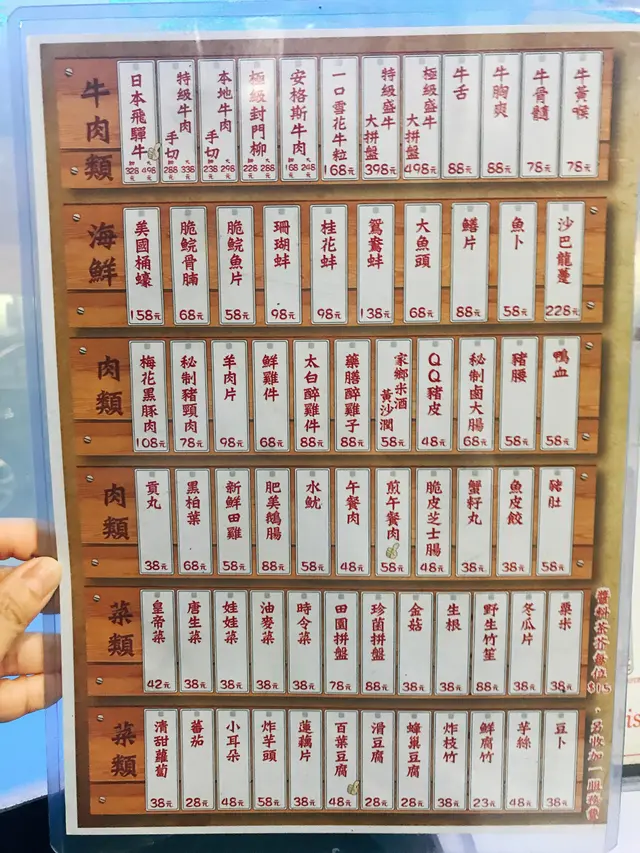 牛肉類
日本飛驒牛 細328元 大498元
特級牛肉 手切 細288元 大338元
本地牛肉 手切 細238元 大298元
極級封門柳 細228元 大288元
安格斯牛肉 細168元 大248元
一口雪花牛粒 168元
特級盛牛大拼盤 398元
極級盛牛大拼盤 498元
牛舌 88元
牛胸爽 88元
牛骨髓 78元
牛黃喉 78元
海鮮
美國桶蠔 158元
脆鯇骨腩 68元
脆鯇魚片 58元
珊瑚蚌 98元
桂花蚌 98元
鴛鴦蚌 138元
大魚頭 68元
鱔片 88元
魚卜 58元
沙巴龍躉 228元
肉類
梅花黑豚肉 108元
秘制豬頸肉 78元
羊肉片 98元
鮮雞件 68元
太白醉雞件 88元
藥膳醉雞子 88元
家鄉米酒黃沙潤 58元
QQ豬皮 48元
秘制鹵大腸 68元
豬腰 58元
鴨血 58元
肉類
貢丸 38元
黑柏葉 68元
新鮮田雞 58元
肥美鵝腸 88元
水魷 58元
午餐肉 48元
煎午餐肉 58元
脆皮芝士腸 48元
蟹籽丸 38元
魚皮餃 38元
豬肚 58元
菜類
皇帝菜 42元
唐生菜 38元
娃娃菜 38元
油麥菜 38元
時令菜 38元
田園拼盤 78元
珍菌拼盤 88元
金菇 38元
生根 38元
野生竹笙 88元
冬瓜片 38元
粟米 38元
菜類
清甜蘿蔔 38元
蕃茄 28元
小耳朵 48元
炸芋頭 58元
蓮藕片 38元
百葉豆腐 48元
滑豆腐 28元
蜂巢豆腐 28元
炸枝竹 38元
鮮腐竹 23元
芋絲 48元
豆卜 38元
醬料茶芥每位$15，另收加一服務費